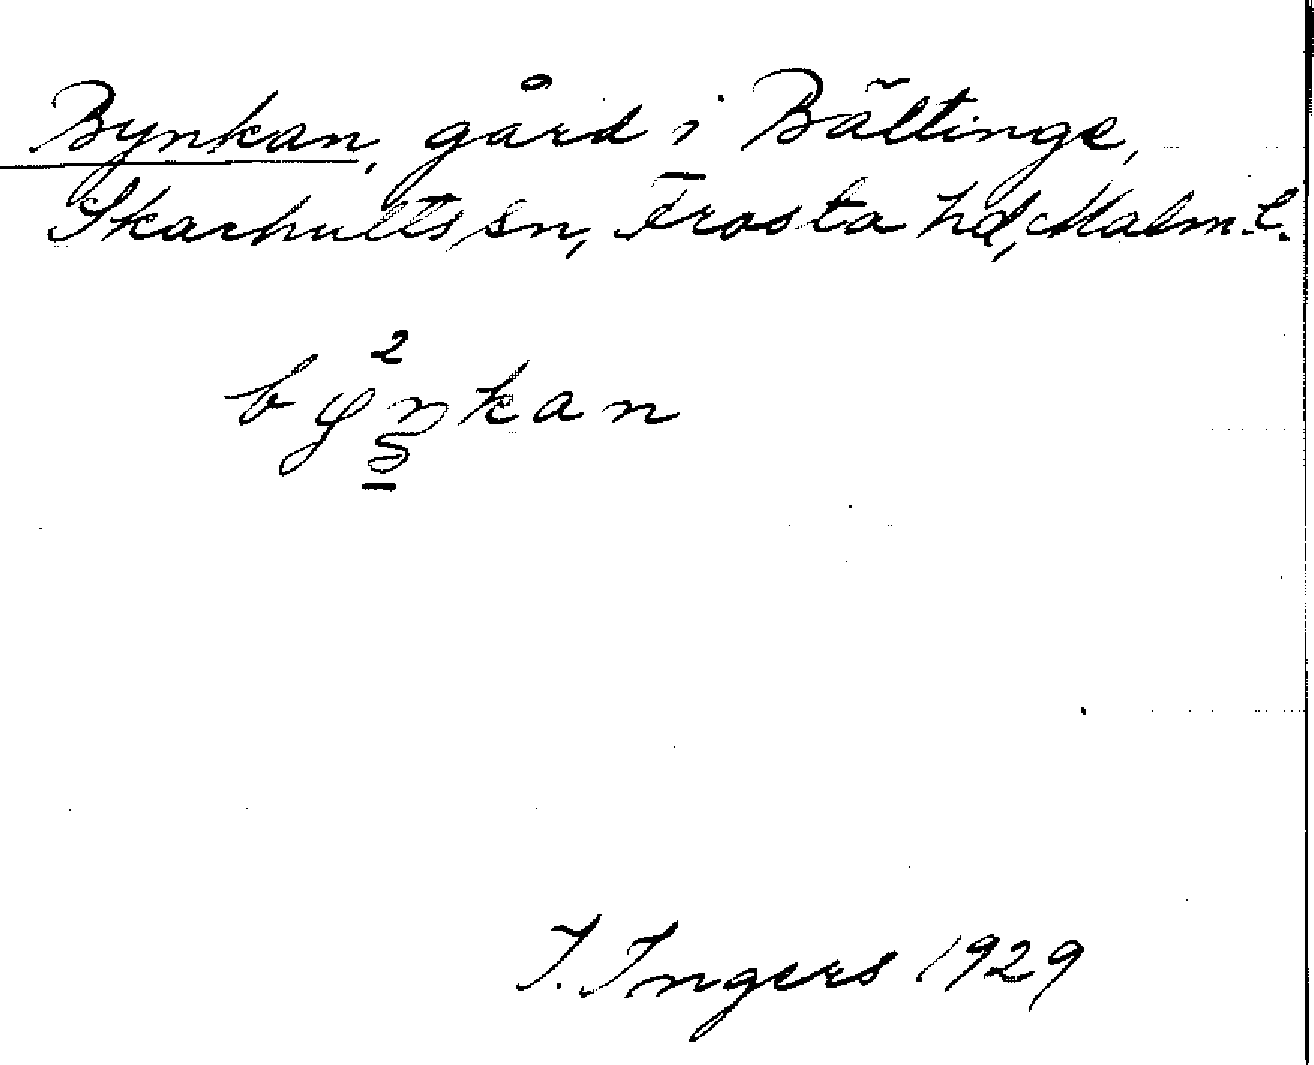 Bynkan, gård i Bältinge,
Skarhults sn, Frosta hd, Malm. l.
2
bynkan
I. Ingers 1929